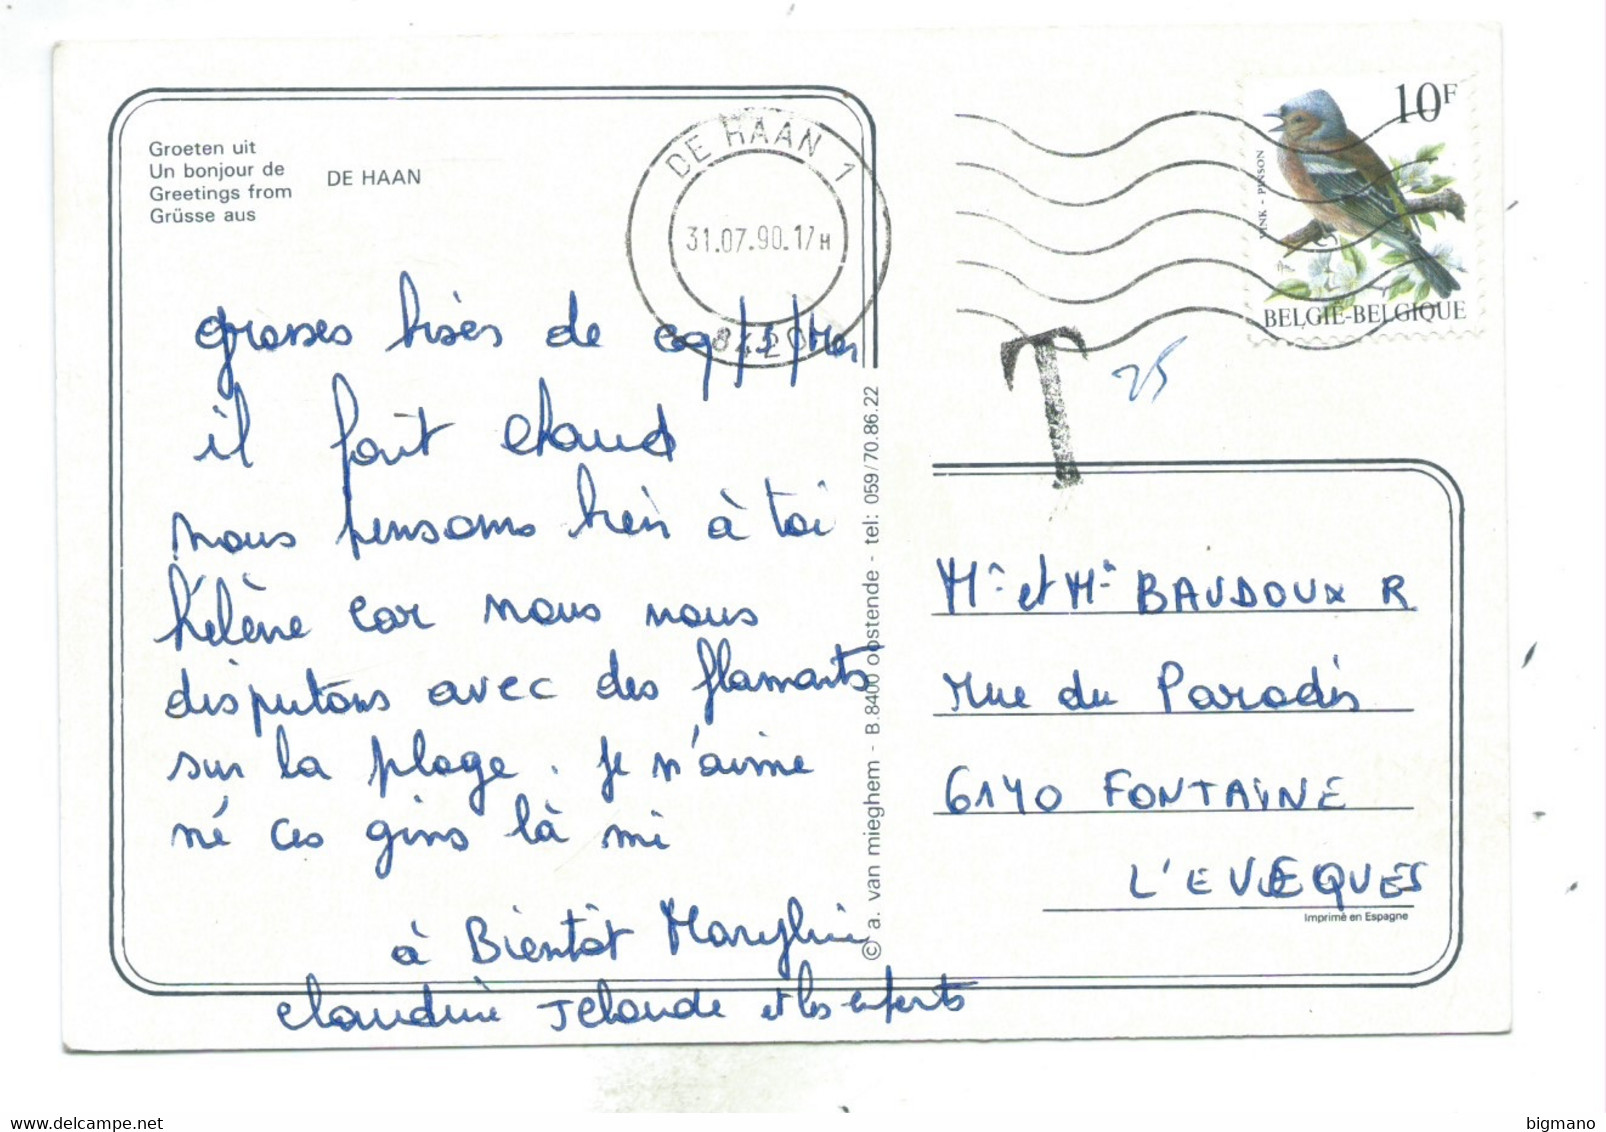 Groeten uit
Un bonjour de
Greetings from
Grüsse aus
DE HAAN
DE HAAN 1
31.07.90.17H
8420
10F
VINK - PINSON
BELGIË-BELGIQUE
T
25
grosses bisès de
il fait chaud
nous pensons bien à toi
hélène car nous nous
disputons avec des flamants
sur la plage. Je n'aime
né ces gins là mi
à Bientôt Marylin
claudine JClaude et les enfants
© a. van mieghem - B.8400 oostende - tel: 059/70.86.22
Mr et Me BAUDOUX R
Rue du Paradis
6140 FONTAINE
L'EVEQUES
Imprimé en Espagne
bigmano